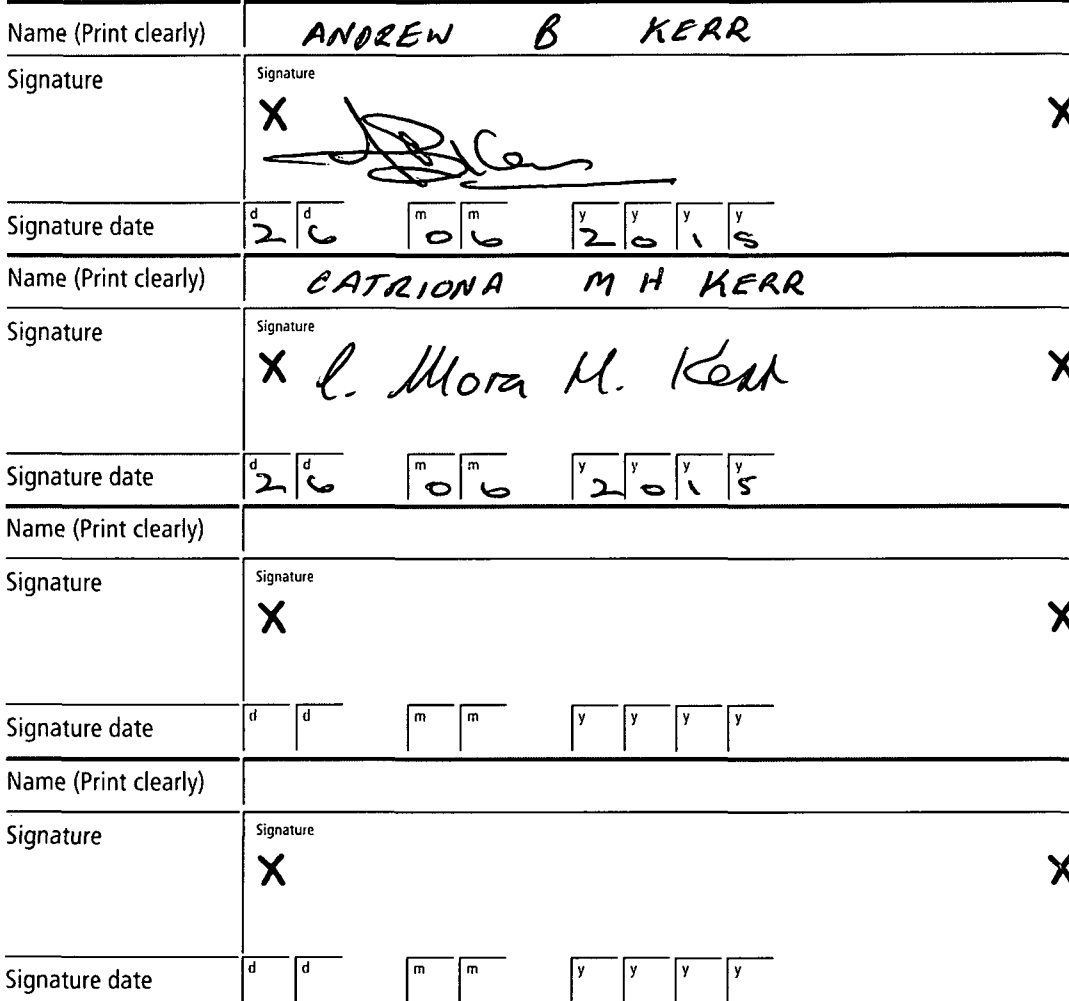 Name (Print clearly) ANDREW B KERR
Signature Signature
X X
Signature date d 2 d 6 m 0 m 6 y 2 y 0 y 1 y 5
Name (Print clearly) CATRIONA M H KERR
Signature Signature
X C. Mora M. Kerr X
Signature date d 2 d 6 m 0 m 6 y 2 y 0 y 1 y 5
Name (Print clearly)
Signature Signature
X X
Signature date d d m m y y y y
Name (Print clearly)
Signature Signature
X X
Signature date d d m m y y y y